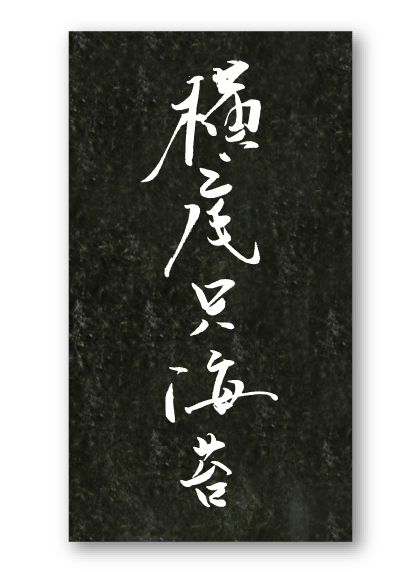 横尾只海苔